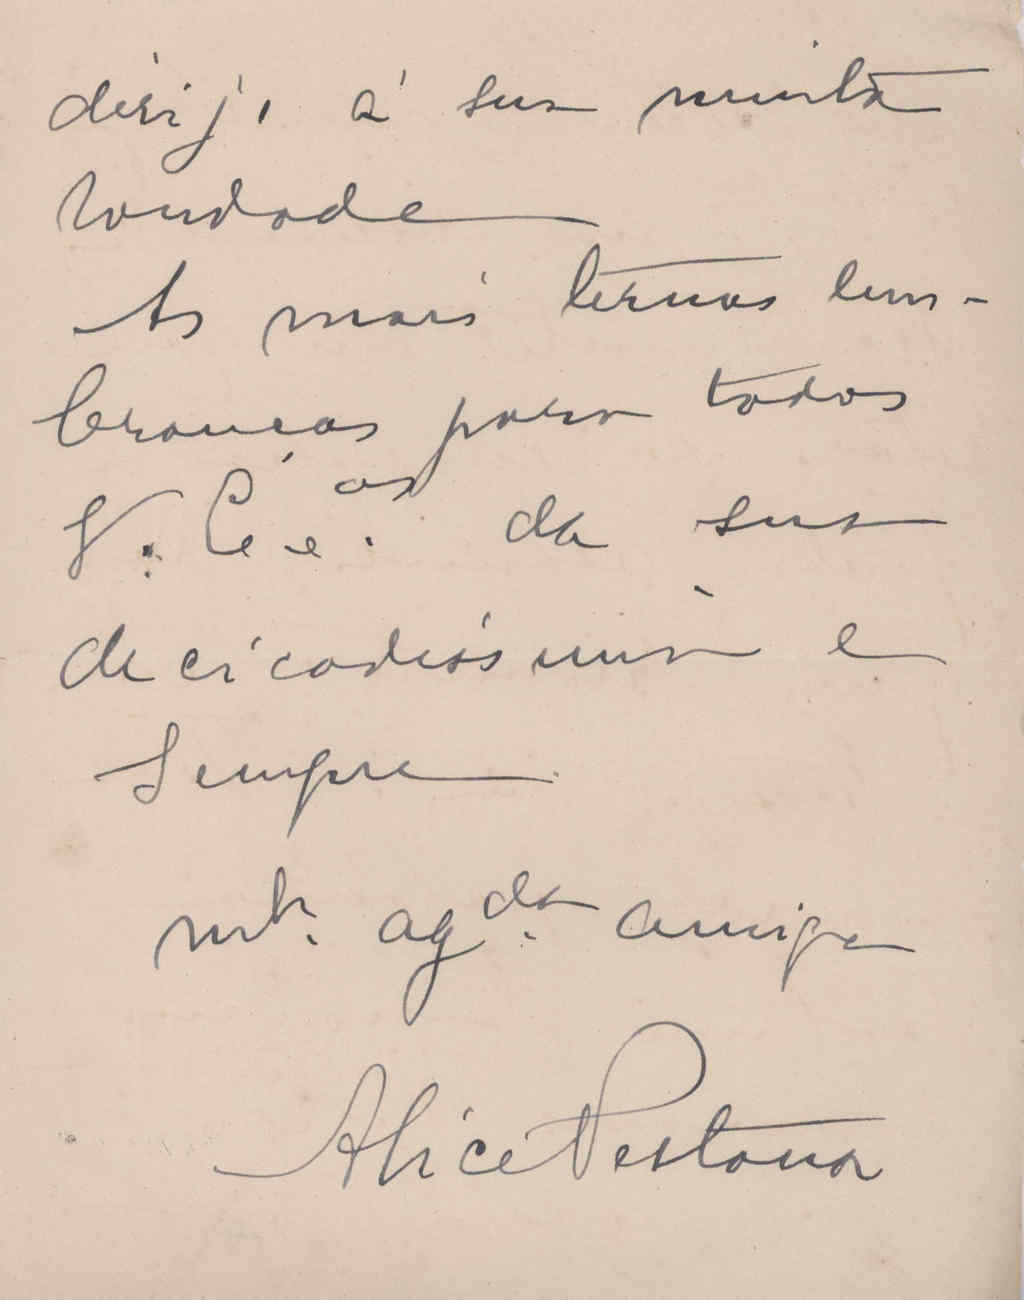 dirijo á sua muita
bondade
As mais ternas lem-
branças para todos
V. Ex.as da sua
dedicadissima e
sempre
mt.º ag.da amiga
Alice Pestana